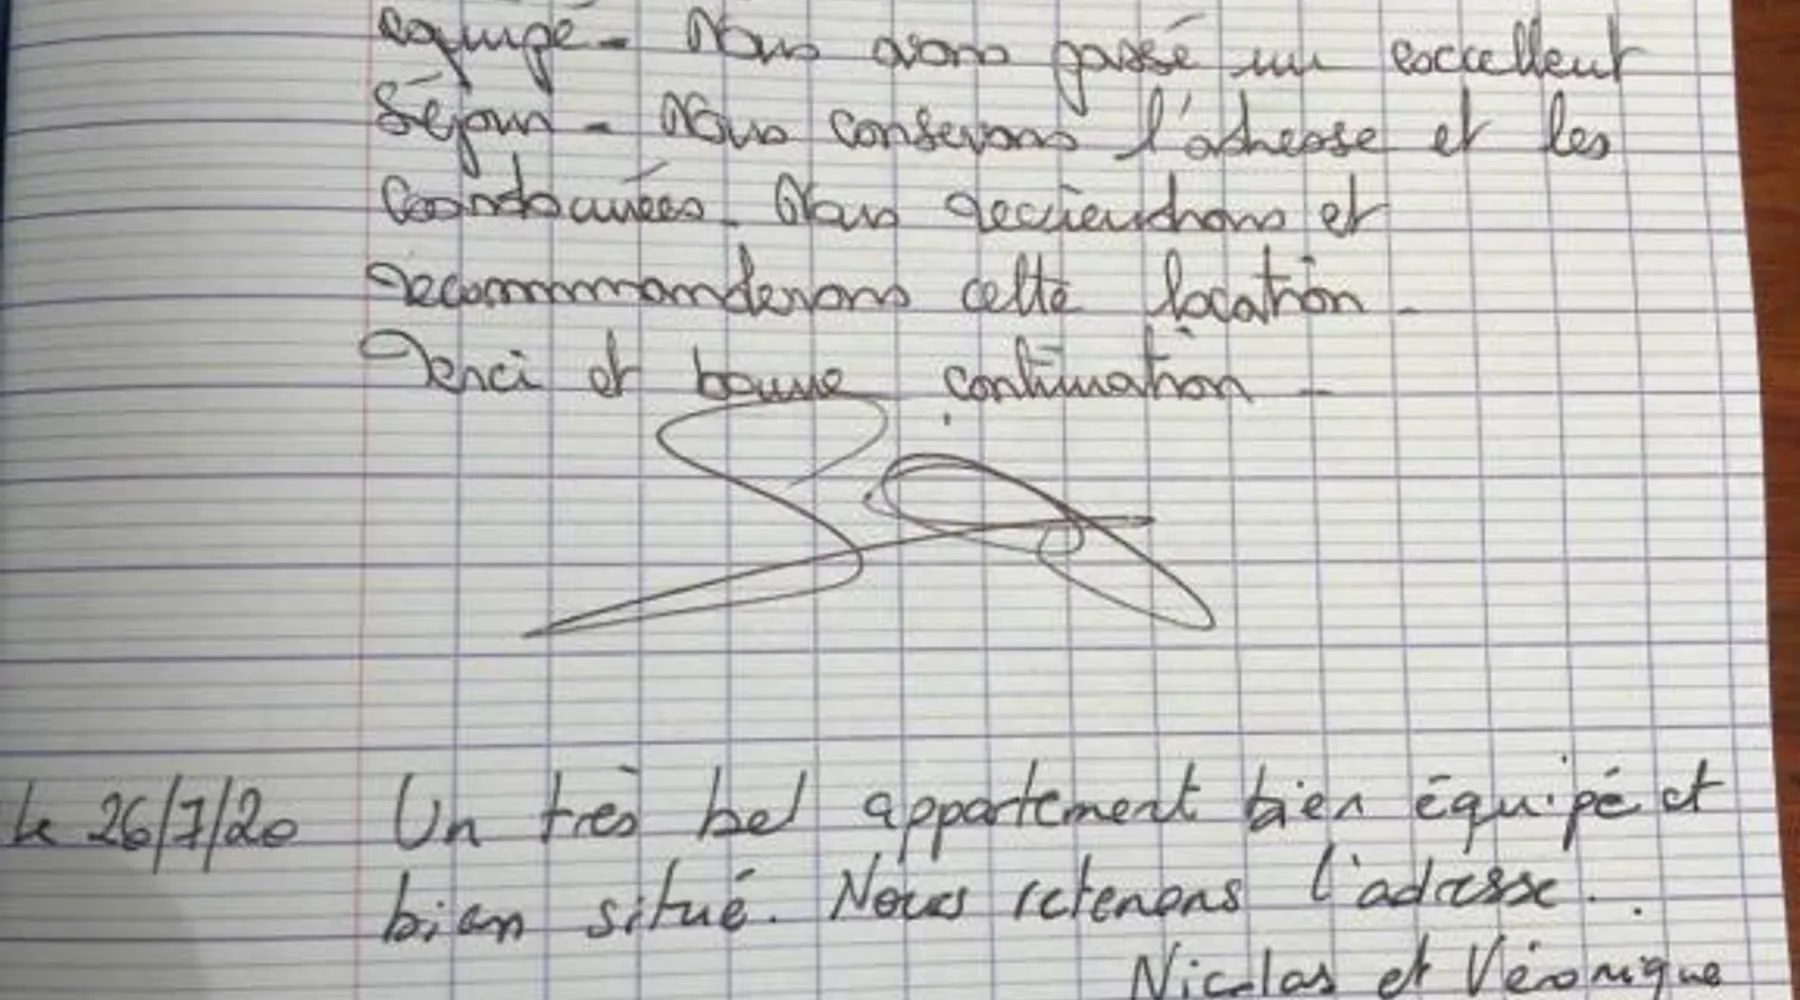 équipé - Nous avons passé un excellent
séjour - Nous conservons l'adresse et les
coordonnées - Nous reviendrons et
recommanderons cette location -
Merci et bonne continuation -
le 26/7/20 Un très bel appartement bien équipé et
bien situé. Nous retenons l'adresse.
Nicolas et Véronique